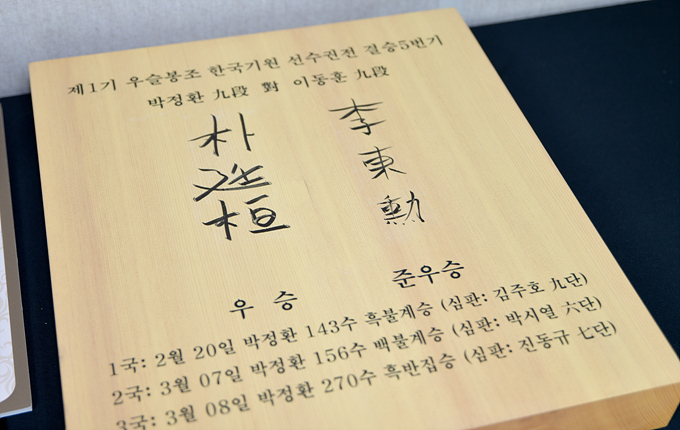 제1기 우슬봉조 한국기원 선수권전 결승5번기
박정환 九段 對 이동훈 九段
朴廷桓 李東勳
우 승 준우승
1국: 2월 20일 박정환 143수 흑불계승 (심판: 김주호 九단)
2국: 3월 07일 박정환 156수 백불계승 (심판: 박시열 六단)
3국: 3월 08일 박정환 270수 흑반집승 (심판: 진동규 七단)